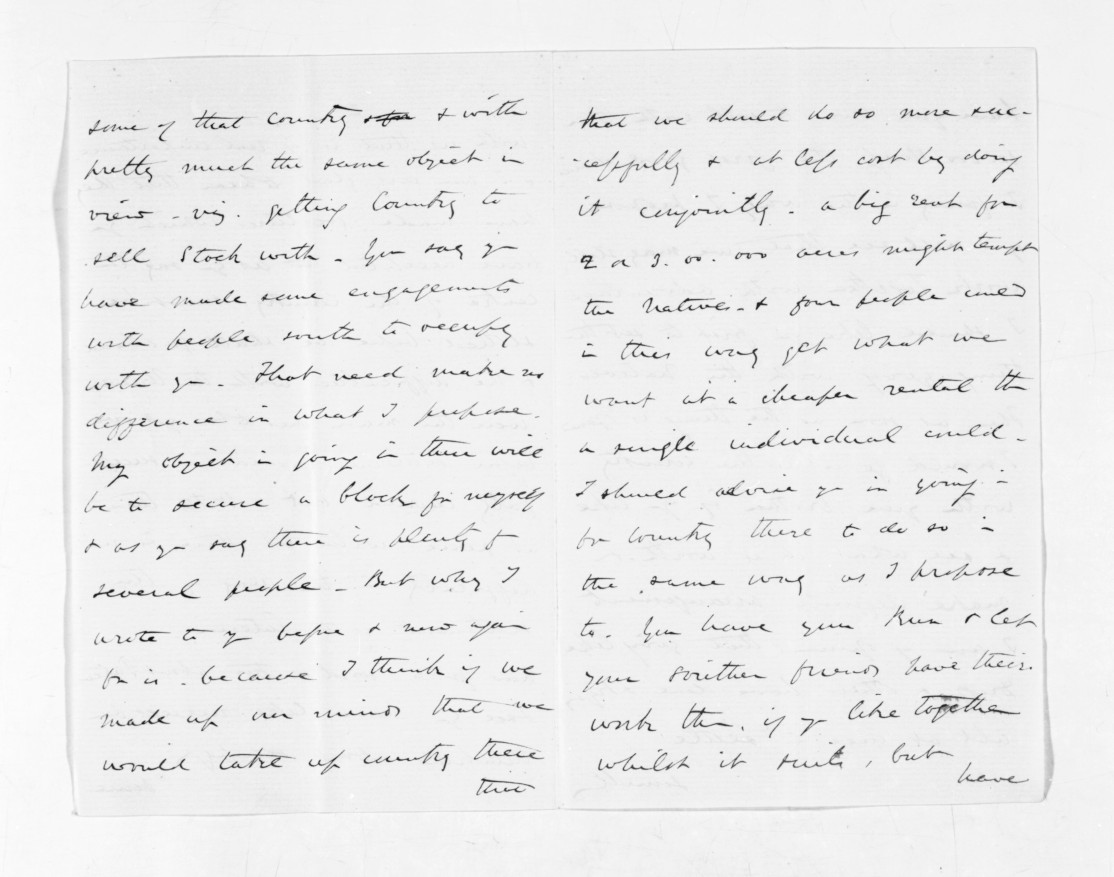 some of that Country & with
pretty much the same object in
view - viz. getting Country to
sell Stock with - You say yr
have made some engagements
with people south to occupy
with yr - That need make no
difference in what I propose.
My object in going in there will
be to secure a block for myself
& as yr say there is plenty for
several people - But why I
wrote to yr before & now again
for is because I think if we
made up our minds that we
would take up country there
that we should do so more suc-
-cessfully & at less cost by doing
it conjointly - a big rent for
2 or 3.00.000 acres might tempt
the natives - & four people could
in this way get what we
want at a cheaper rental than
a single individual could -
I should advise yr in going in
for Country there to do so in
the same way as I propose
to. You have your Run & let
your southern friends have theirs.
work them if yr like together
whilst it suits, but
have